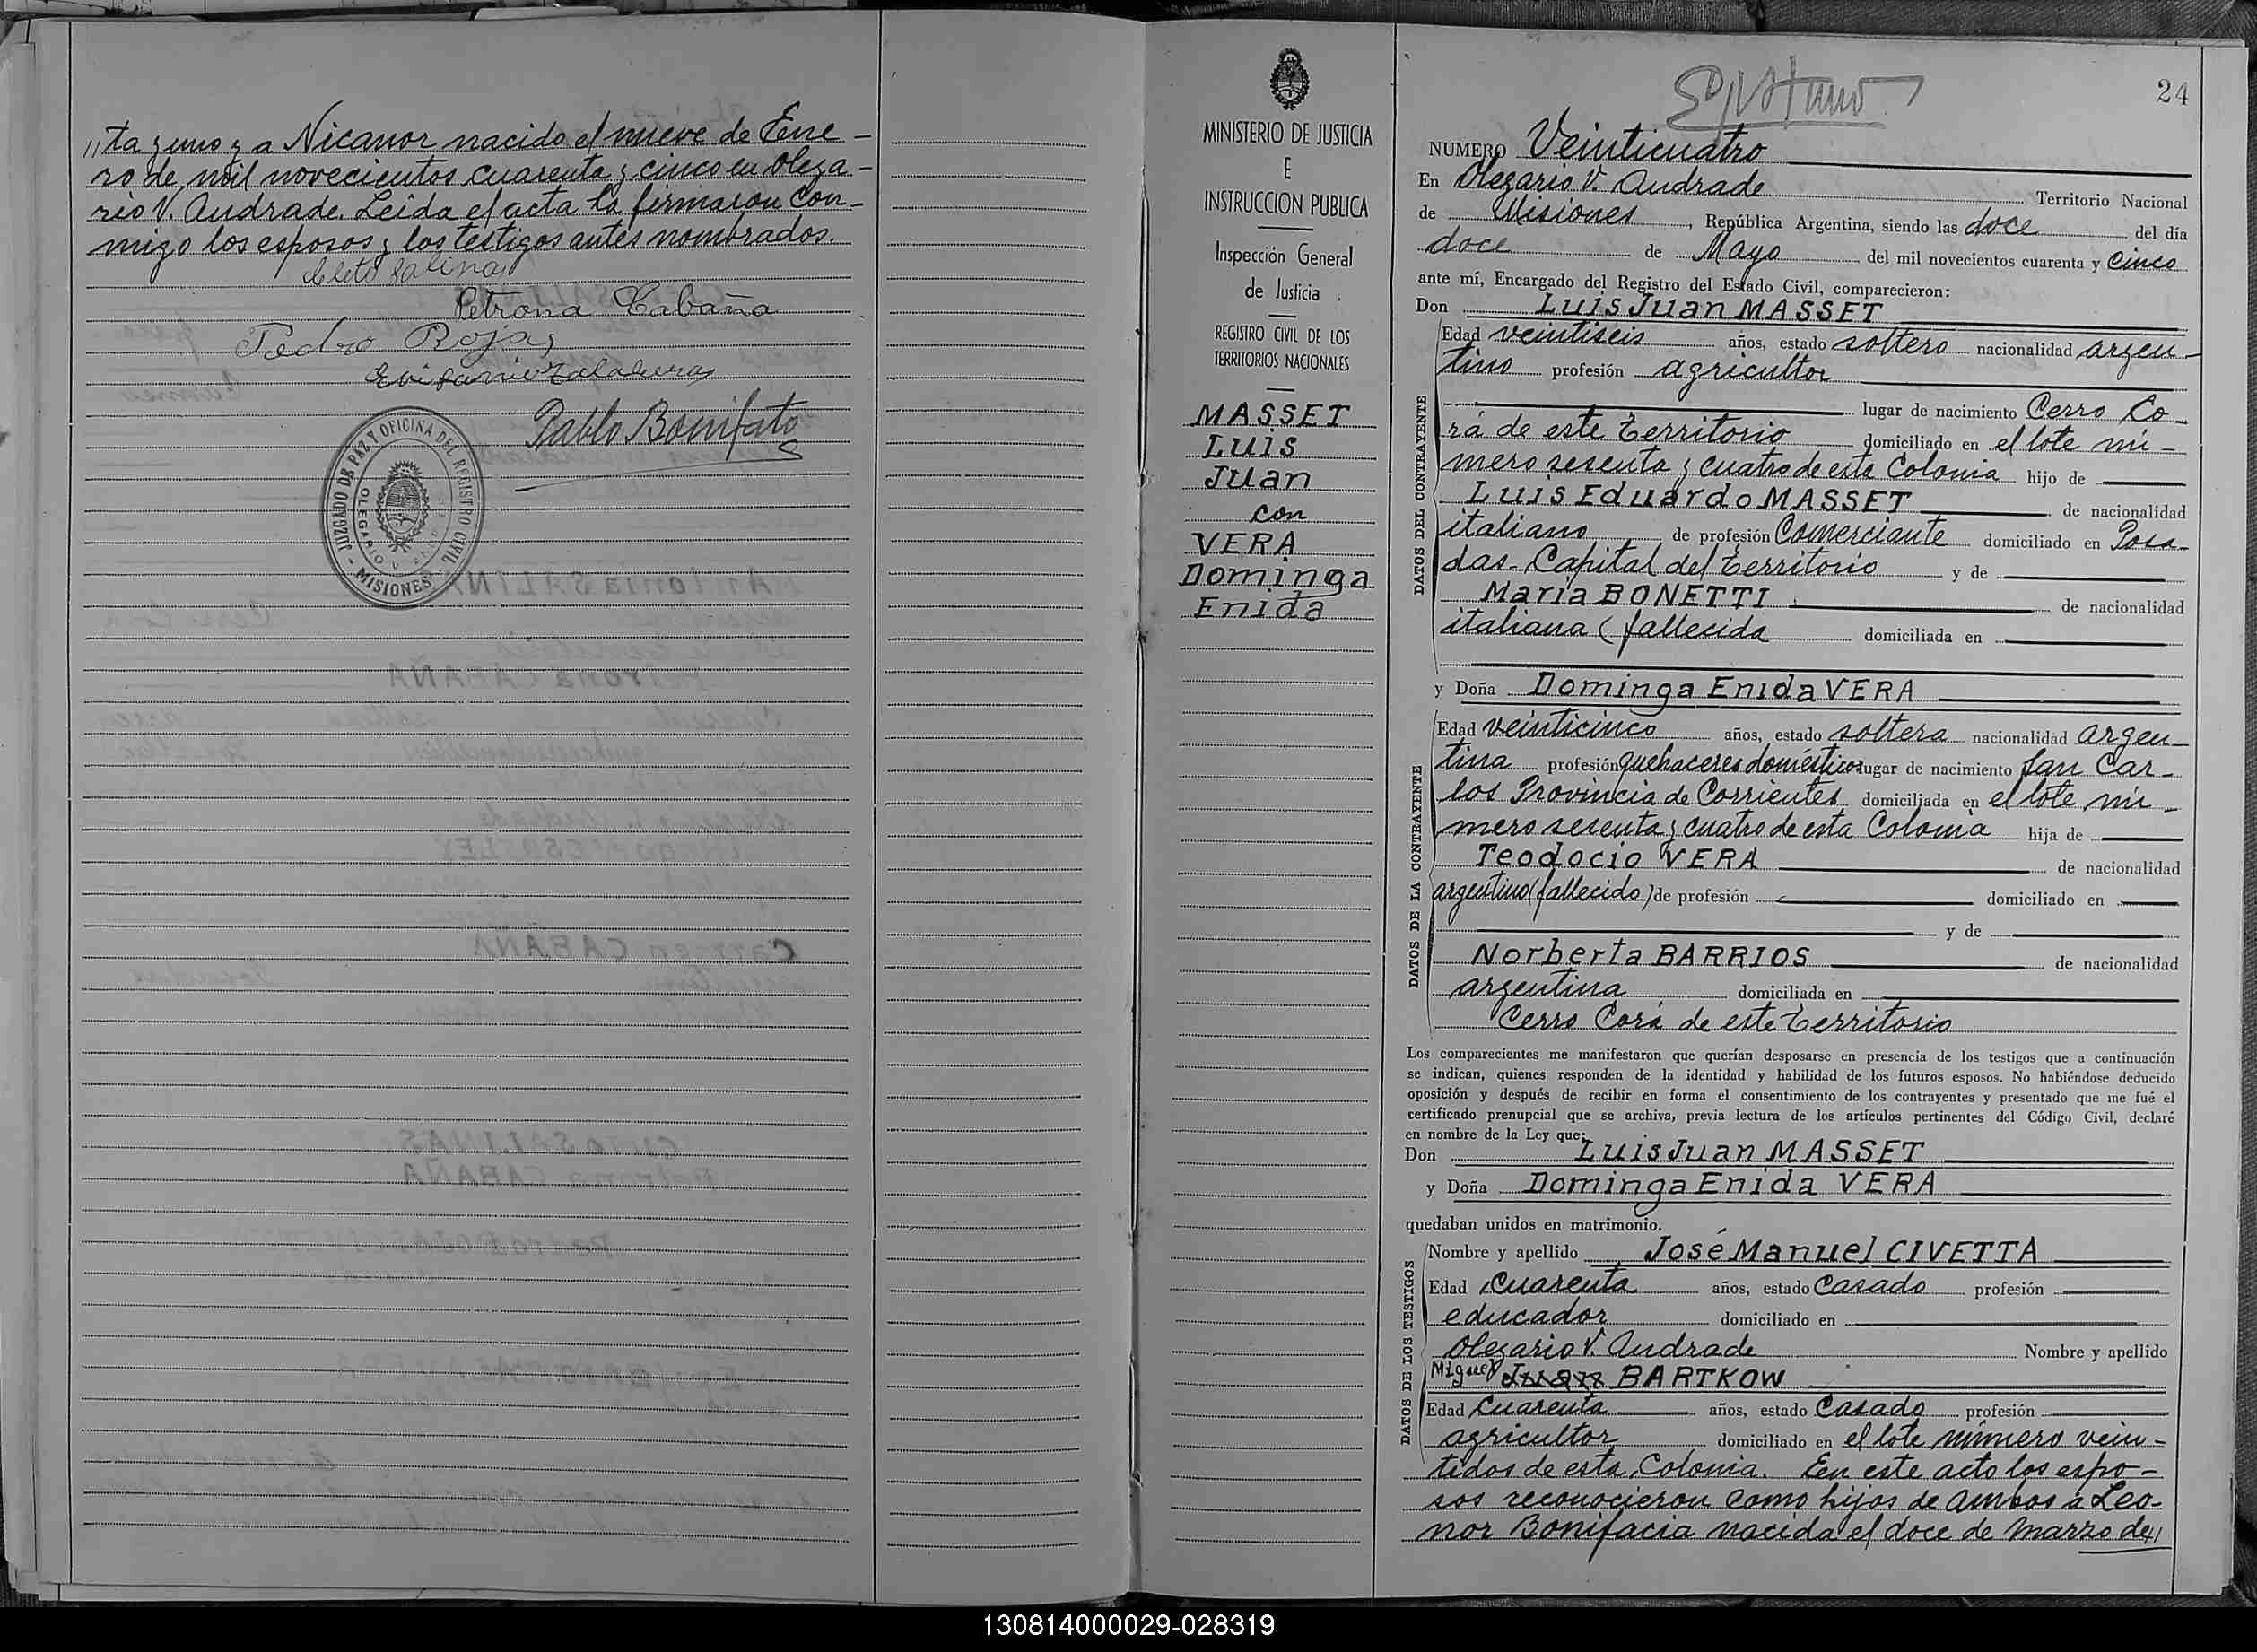 "ta y uno y a Nicanor nacido el nueve de Ene-
ro de mil novecientos cuarenta y cinco en Olega-
rio V. Andrade. Leida el acta la firmaron con-
migo los esposos y los testigos antes nombrados.
Cleto Salinas
Petrona Cabaña
Pedro Rojas
Pablo Bonifato
JUZGADO DE PAZ Y OFICINA DEL REGISTRO CIVIL
OLEGARIO V. ANDRADE
- MISIONES -
MINISTERIO DE JUSTICIA
E
INSTRUCCION PUBLICA
Inspección General
de Justicia
REGISTRO CIVIL DE LOS
TERRITORIOS NACIONALES
MASSET
Luis
Juan
con
VERA
Dominga
Enida
24
NUMERO Veinticuatro
En Olegario V. Andrade Territorio Nacional
de Misiones, República Argentina, siendo las doce del día
doce de Mayo del mil novecientos cuarenta y cinco
ante mí, Encargado del Registro del Estado Civil, comparecieron:
Don Luis Juan MASSET
DATOS DEL CONTRAYENTE
Edad veintiseis años, estado soltero nacionalidad argen-
tino profesión agricultor
lugar de nacimiento Cerro Co-
rá de este territorio domiciliado en el lote nú-
mero sesenta y cuatro de esta Colonia hijo de
Luis Eduardo MASSET de nacionalidad
italiano de profesión Comerciante domiciliado en Posa-
das - Capital del territorio y de
Maria BONETTI de nacionalidad
italiana (fallecida domiciliada en
y Doña Dominga Enida VERA
DATOS DE LA CONTRAYENTE
Edad veinticinco años, estado soltera nacionalidad argen-
tina profesión quehaceres domésticos lugar de nacimiento San Car-
los Provincia de Corrientes domiciliada en el lote nú-
mero sesenta y cuatro de esta Colonia hija de
Teodocio VERA de nacionalidad
argentino (fallecido) de profesión domiciliado en
y de
Norberta BARRIOS de nacionalidad
argentina domiciliada en
Cerro Corá de este territorio
Los comparecientes me manifestaron que querían desposarse en presencia de los testigos que a continuación
se indican, quienes responden de la identidad y habilidad de los futuros esposos. No habiéndose deducido
oposición y después de recibir en forma el consentimiento de los contrayentes y presentado que me fué el
certificado prenupcial que se archiva, previa lectura de los artículos pertinentes del Código Civil, declaré
en nombre de la Ley que:
Don Luis Juan MASSET
y Doña Dominga Enida VERA
quedaban unidos en matrimonio.
DATOS DE LOS TESTIGOS
Nombre y apellido José Manuel CIVETTA
Edad cuarenta años, estado Casado profesión
educador domiciliado en
Olegario V. Andrade Nombre y apellido
Miguel Juan BARTKOW
Edad Cuarenta años, estado Casado profesión
agricultor domiciliado en el lote número vein-
tidos de esta Colonia. En este acto los espo-
sos reconocieron como hijos de ambos a Leo-
nor Bonifacia nacida el doce de Marzo de"
130814000029-028319